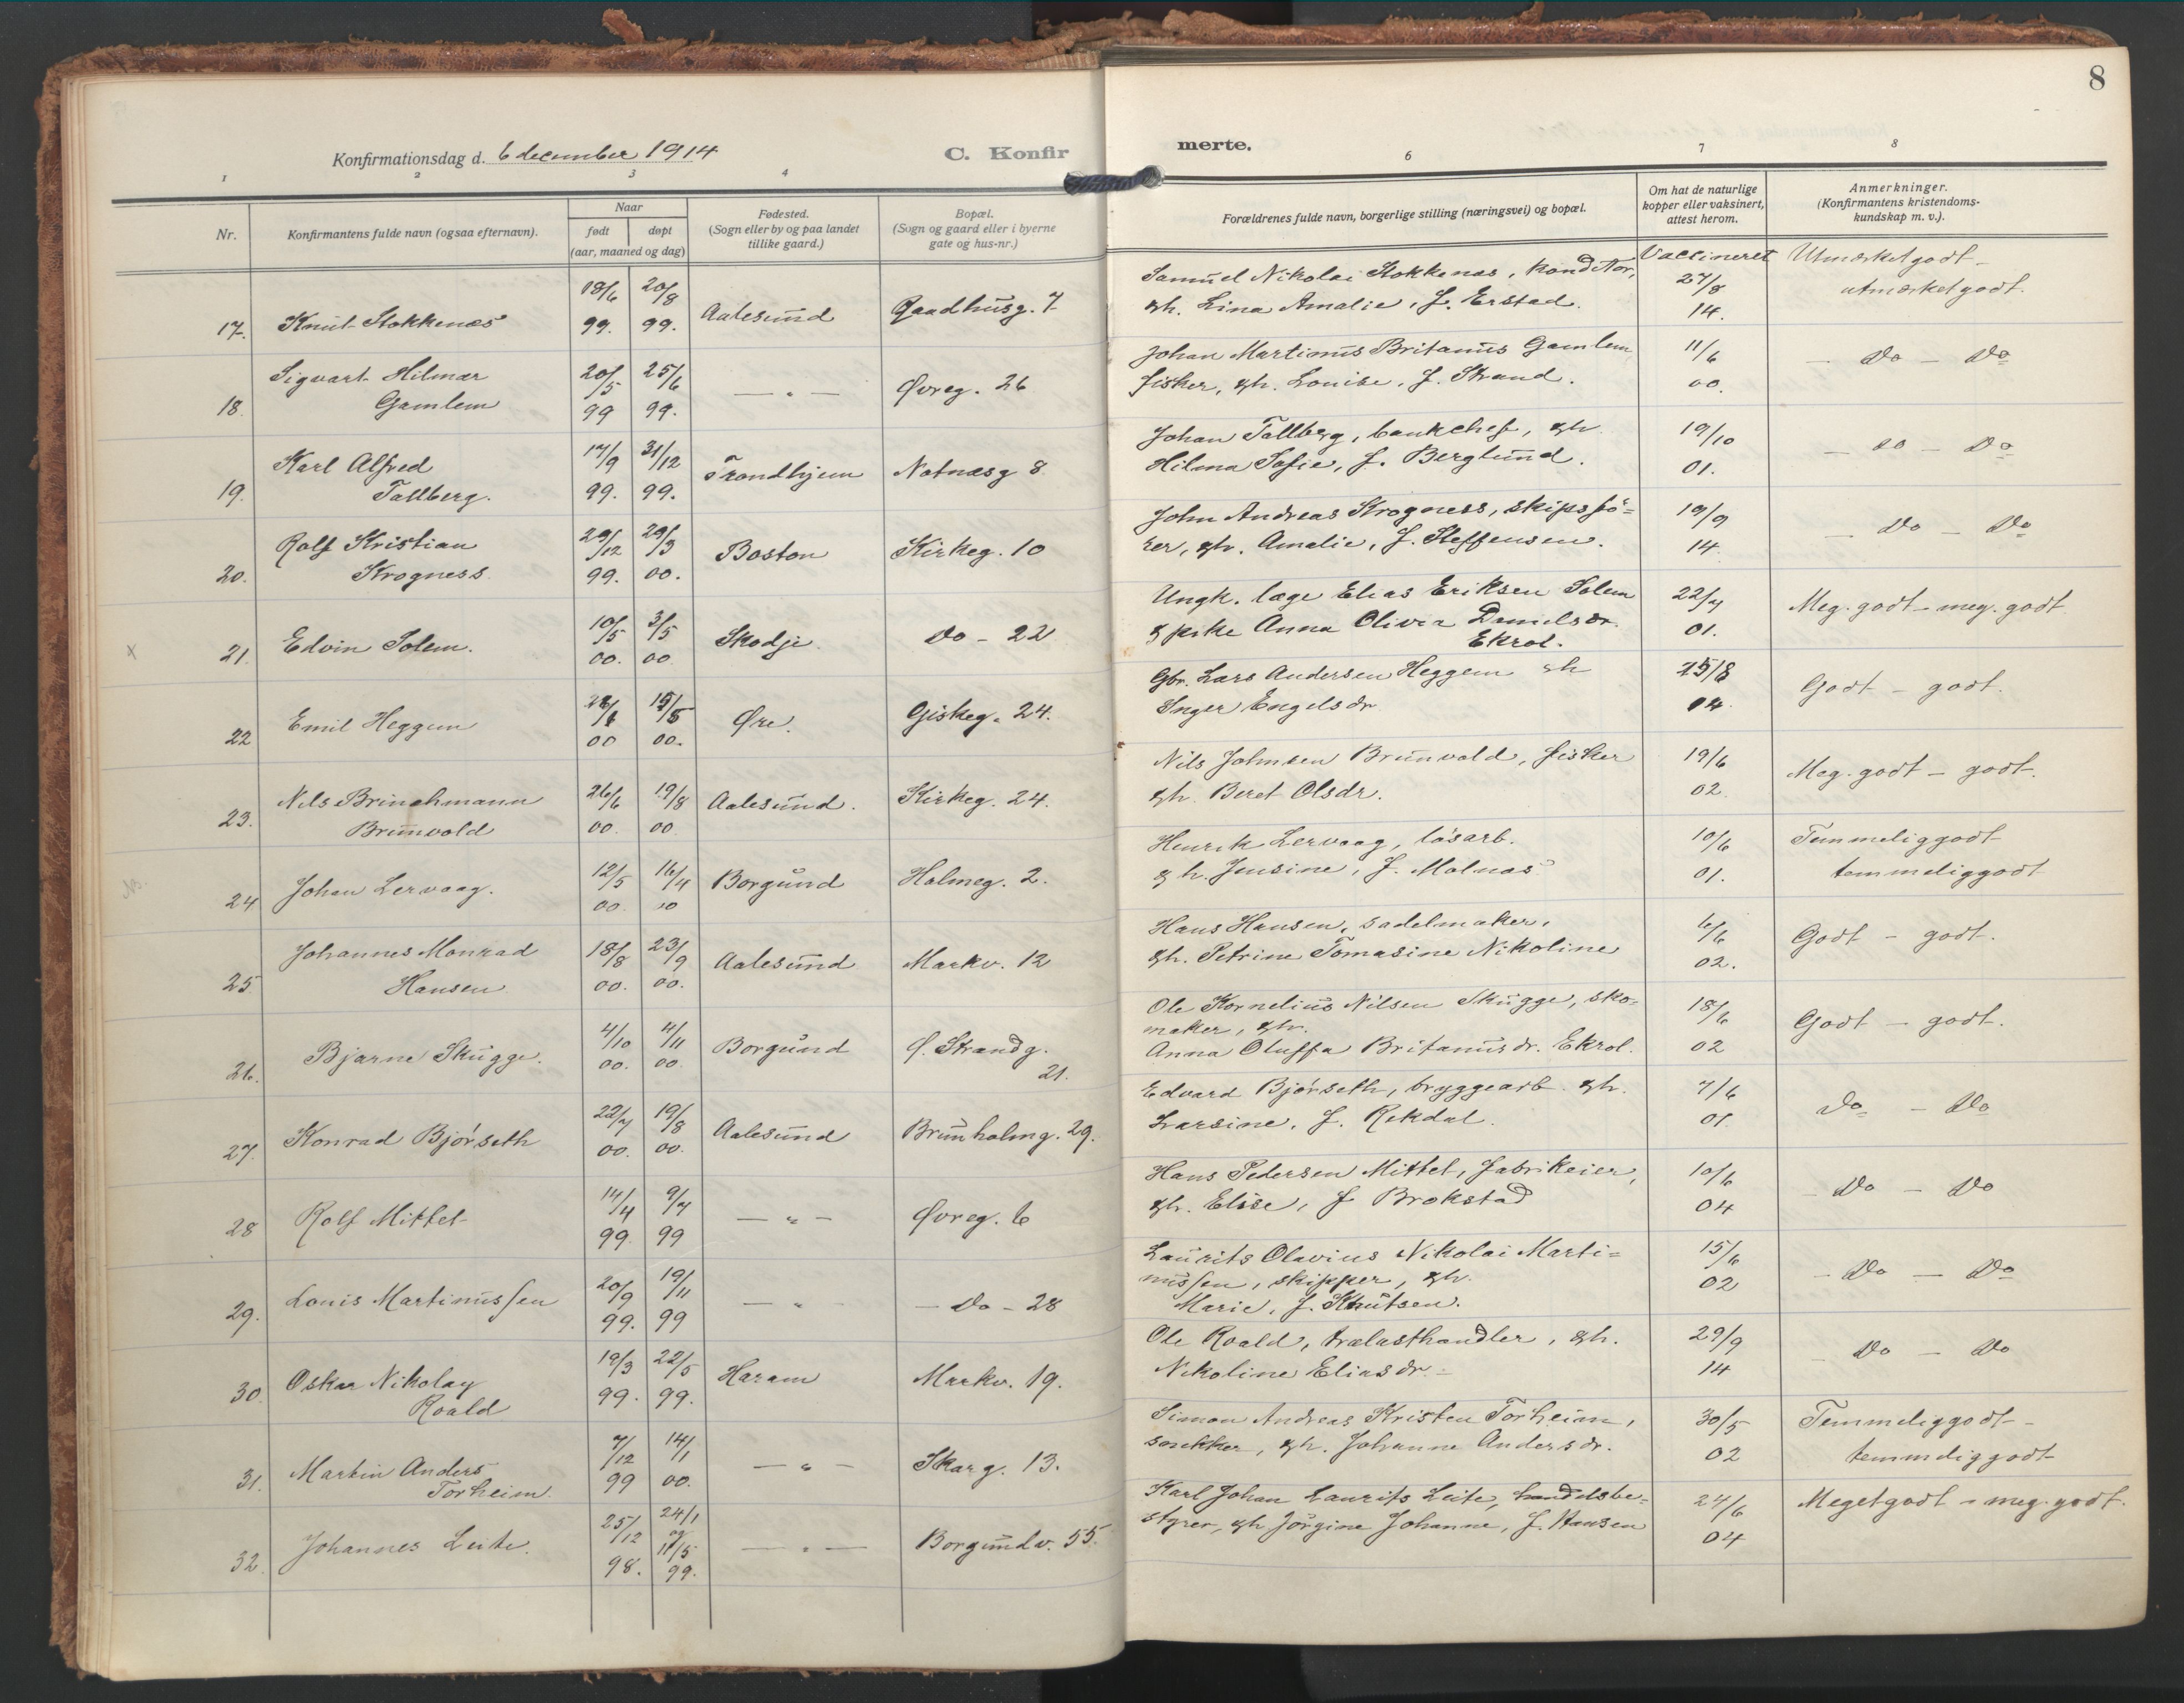 8
Konfirmationsdag d. 6 december 1914
C. Konfir
merte.
1 2 3 4
6 7 8
Nr.
Konfirmantens fulde navn (ogsaa efternavn).
Naar
født
døpt
(aar, maaned og dag)
Fødested.
(Sogn eller by og paa landet
tillike gaard.)
Bopæl.
(Sogn og gaard eller i byerne
gate og hus-nr.)
Forældrenes fulde navn, borgerlige stilling (næringsvei) og bopæl.
Om hat de naturlige
kopper eller vaksinert,
attest herom.
Anmerkninger.
(Konfirmantens kristendoms-
kundskap m. v.).
17. Knut Stokkenæs 18/6 99. 20/8 99. Aalesund Raadhusg. 7
Samuel Nikolai Stokkenæs, konditor,
gh. Lina Amalie, f. Erstad.
Vaccineret 27/8 14.
Utmerket godt –
utmerket godt.
18. Sigvart Hilmar
Gamlem 20/5 99 25/6 99. — " — Øvreg. 26
Johan Martinus Britanus Gamlem
fisker, gh. Louise, f. Strand.
11/6 00.
– Do – Do
19. Karl Alfred
Tallberg. 17/9 99. 31/12 99. Trondhjem Notnæsg 8.
Johan Tallberg, bankchef, gh.
Hilma Sofie, f. Berglund.
19/10 01.
– Do – Do
20. Rolf Kristian
Krogness 29/12 99. 29/3 00. Boston Kirkeg. 10
John Andreas Krogness, skipsfö=
rer, gh. Amalie, f. Steffensen.
19/9 14.
– Do – Do
x 21. Edvin Solem. 10/5 00. 3/5 00 Skodje. Do – 22
Ungk. læge Elias Eriksen Solem
& pike Anna Olivia Danielsdr.
Ekrol.
22/7 01.
Meg. godt – meg. godt
22 Emil Heggem 00 15/5 00. Øre. Giskeg. 24.
Gbr. Lars Andersen Heggem gh
Inger Engelsdr
25/8 04.
Godt – godt.
23. Nils Brinchmann
Brunvold 26/6 00. 19/8 00. Aalesund. Kirkeg. 24.
Nils Johnsen Brunvold, fisker
gh. Beret Olsdr.
19/6 02.
Meg. godt – godt.
24 Johan Lervaag. 12/5 00. 16/7 00 Borgund Holmeg. 2.
Henrik Lervaag, lösarb.
gh. Jensine, f. Molnæs
10/6 01.
Temmelig godt
temmelig godt
25 Johannes Monrad
Hansen 18/8 00. 23/9 00. Aalesund Markv. 12
Hans Hansen, sadelmaker,
gh. Petrine Tomasine Nikoline
6/6 02.
Godt – godt.
26. Bjarne Skugge. 4/10 00. 4/11 00. Borgund Ø. Strandg.
21.
Ole Kornelius Nilsen Skugge, sko=
maker, gh.
Anna Oluffa Britanusdr. Ekrol.
18/6 02
Godt – godt.
27. Konrad Bjørseth 22/7 00. 19/8 00. Aalesund Brunholmg. 29.
Edvard Bjørseth, bryggearb. gh.
Larsine, f. Rekdal.
7/6 01.
Do – Do
28 Rolf Mittet 14/4 99. 9/7 99 — " — Øvreg. 6
Hans Pedersen Mittet, fabrikeier,
gh. Elise, f Brokstad
10/6 04
– Do – Do
29. Louis Martinussen 20/9 99. 19/11 99 — " — – Do – 28
Laurits Olavius Nikolai Marti=
nussen, skipper, gh.
Marie, f. Knutsen.
15/6 02
– Do – Do
30 Oskar Nikolay
Roald 19/3 99. 22/5 99. Haram Markv. 19.
Ole Roald, trælasthandler, gh.
Nikoline Eliasdr. –
29/9 14
– Do – Do
31. Martin Anders
Torheim. 7/12 99 14/1 00. — " — Skarg. 13.
Simon Andreas Kristen Torheim,
snekker, gh. Johanne Andersdr.
30/5 02
Temmelig godt –
temmelig godt
32. Johannes Leite. 25/12 98. 24/1 og 11/5 99. — " — Borgundv. 55.
Karl Johan Laurits Leite, handelsbe=
styrer, gh Jörgine Johanne, f. Hansen
24/6 04
Meget godt – meg. godt.